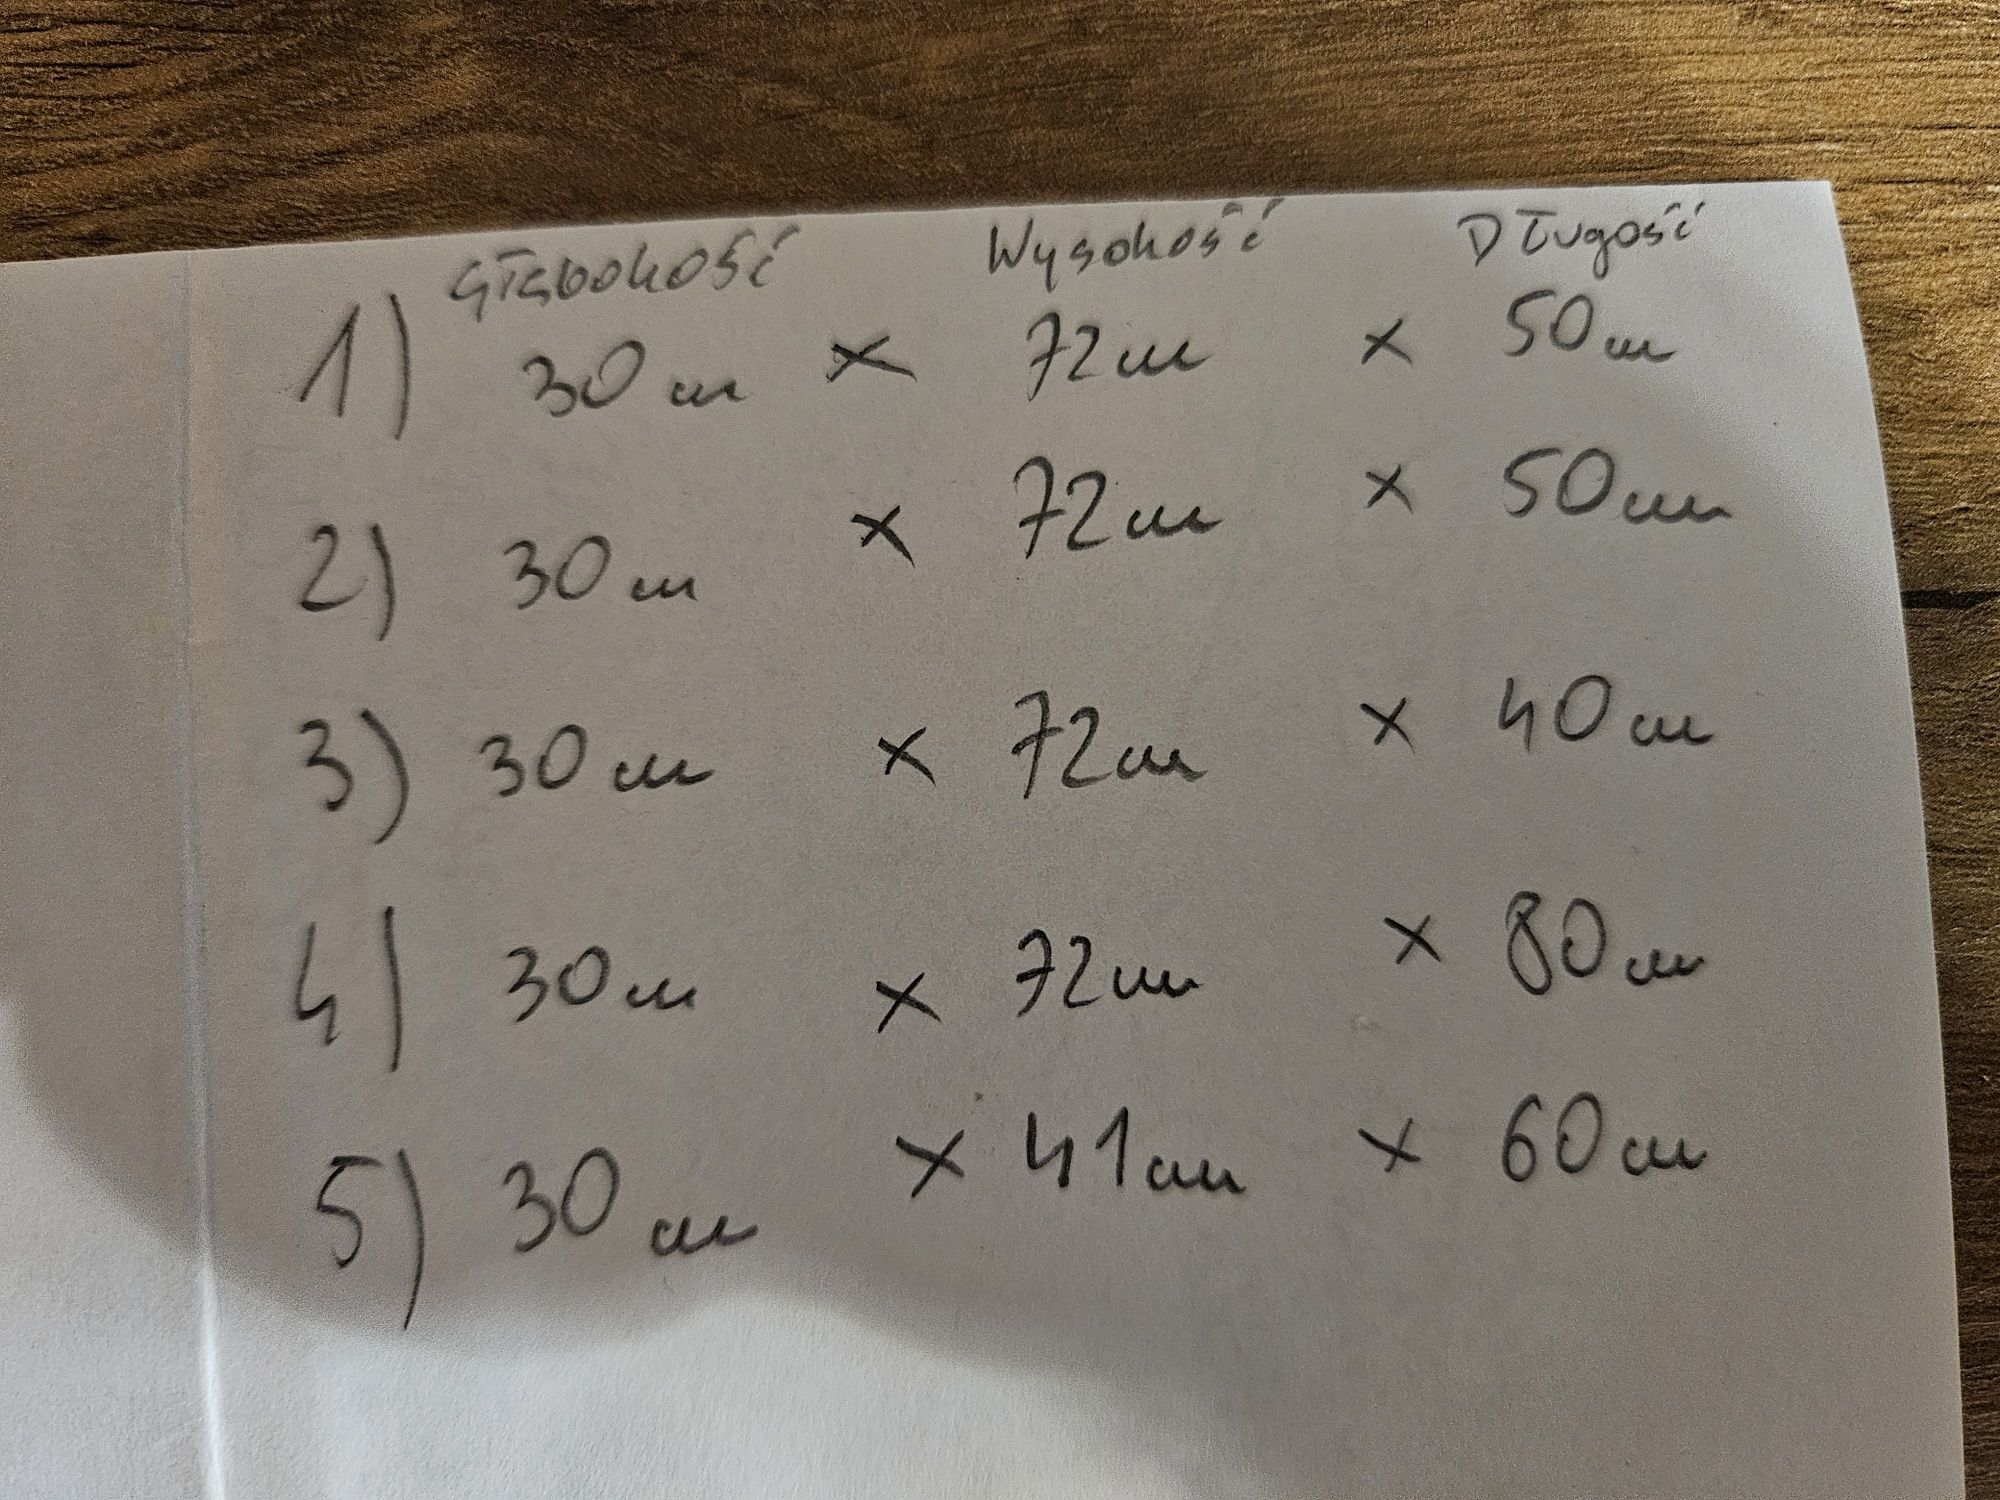 Głębokość Wysokość Długość
1) 30 cm x 72 cm x 50 cm
2) 30 cm x 72 cm x 50 cm
3) 30 cm x 72 cm x 40 cm
4) 30 cm x 72 cm x 80 cm
5) 30 cm x 41 cm x 60 cm